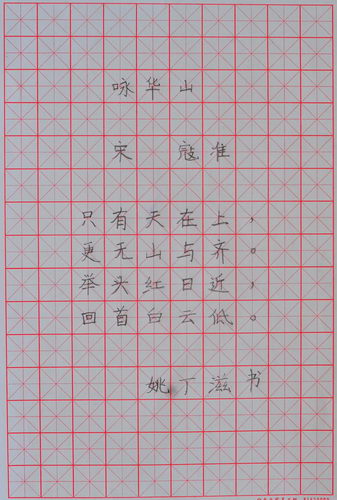 咏华山
宋 寇准
只有天在上，
更无山与齐。
举头红日近，
回首白云低。
姚丁滋书